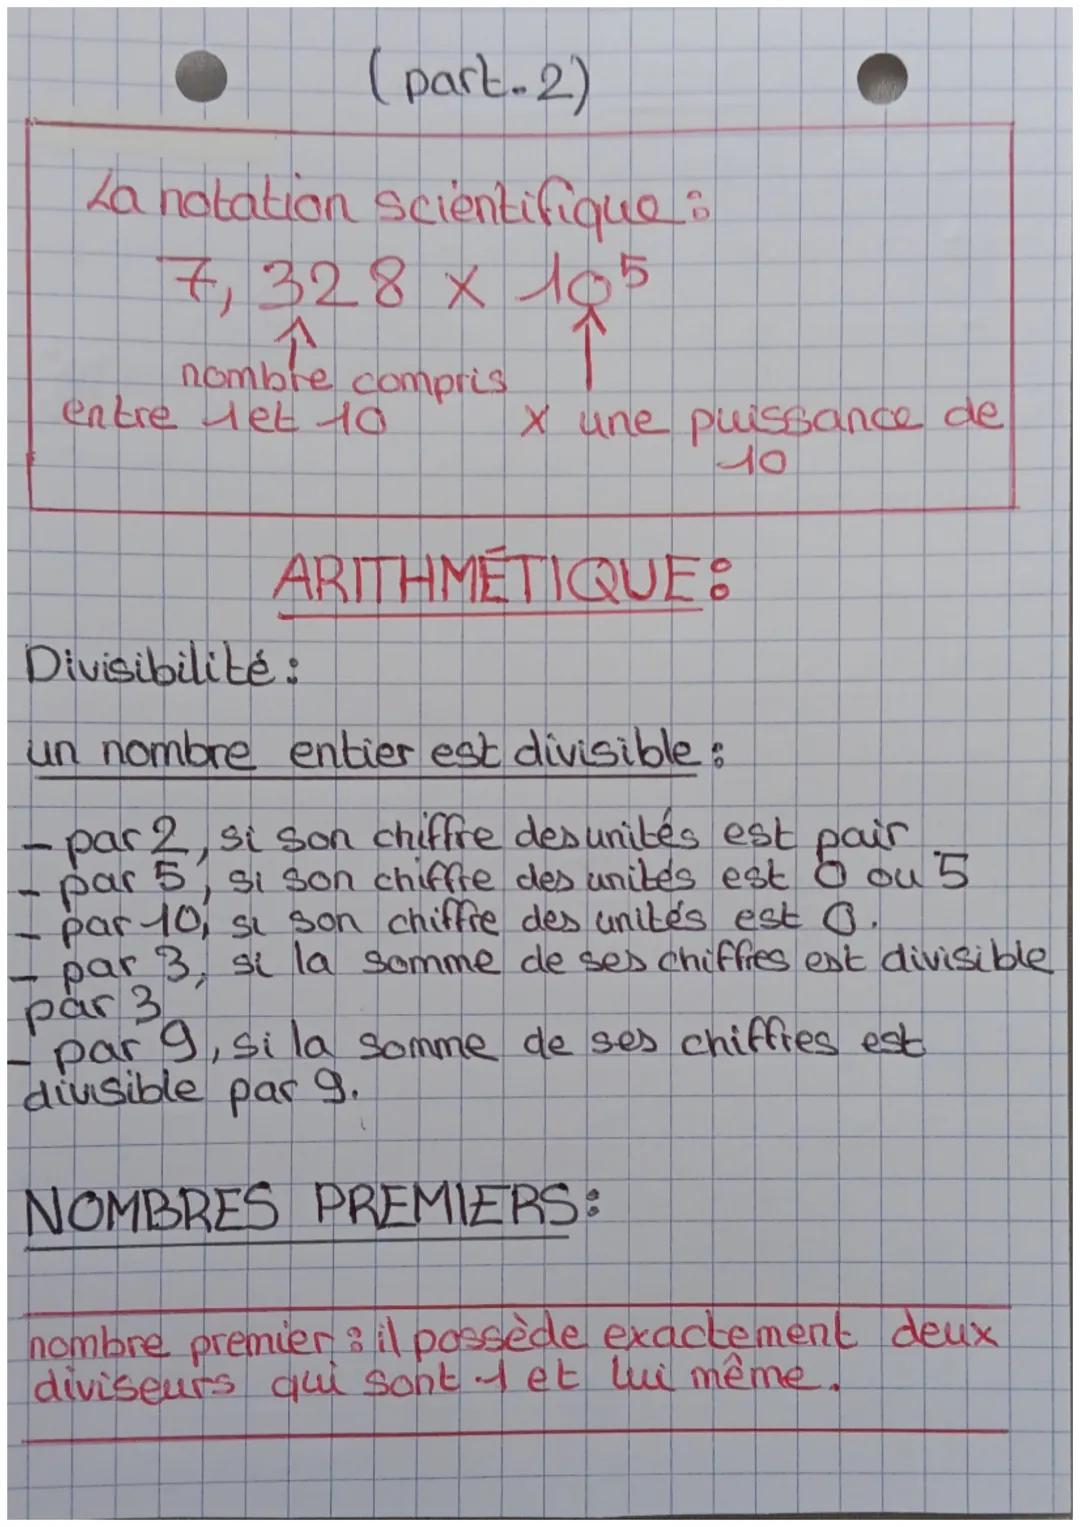 (part.2)
La notation scientifique :
7,328 x 10⁵
nombre compris
entre 1 et 10 x une puissance de
10
ARITHMÉTIQUE :
Divisibilité :
un nombre entier est divisible :
- par 2, si son chiffre des unités est pair
- par 5, si son chiffre des unités est 0 ou 5
- par 10, si son chiffre des unités est 0.
- par 3, si la somme de ses chiffres est divisible
par 3
- par 9, si la somme de ses chiffres est
divisible par 9.
NOMBRES PREMIERS :
nombre premier : il possède exactement deux
diviseurs qui sont 1 et lui même.